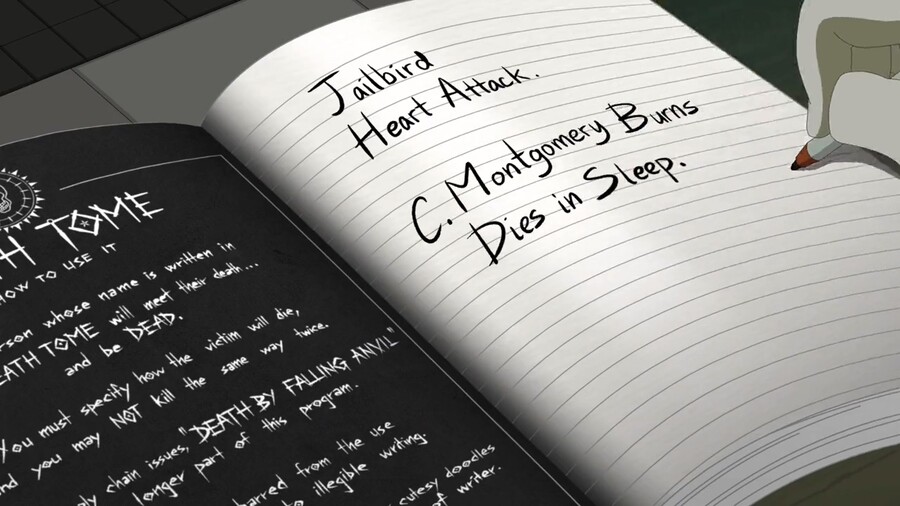 TH TOME
HOW TO USE IT
rson whose name is written in
EATH TOME will meet their death...
and be DEAD.
You must specify how the victim will die,
nd you may NOT kill the same way twice.
ly chain issues, "DEATH BY FALLING ANVIL"
longer part of this program.
barred from the use
to illegible writing
cutesy doodles
of writer.
Jailbird
Heart Attack.
C. Montgomery Burns
Dies in Sleep.